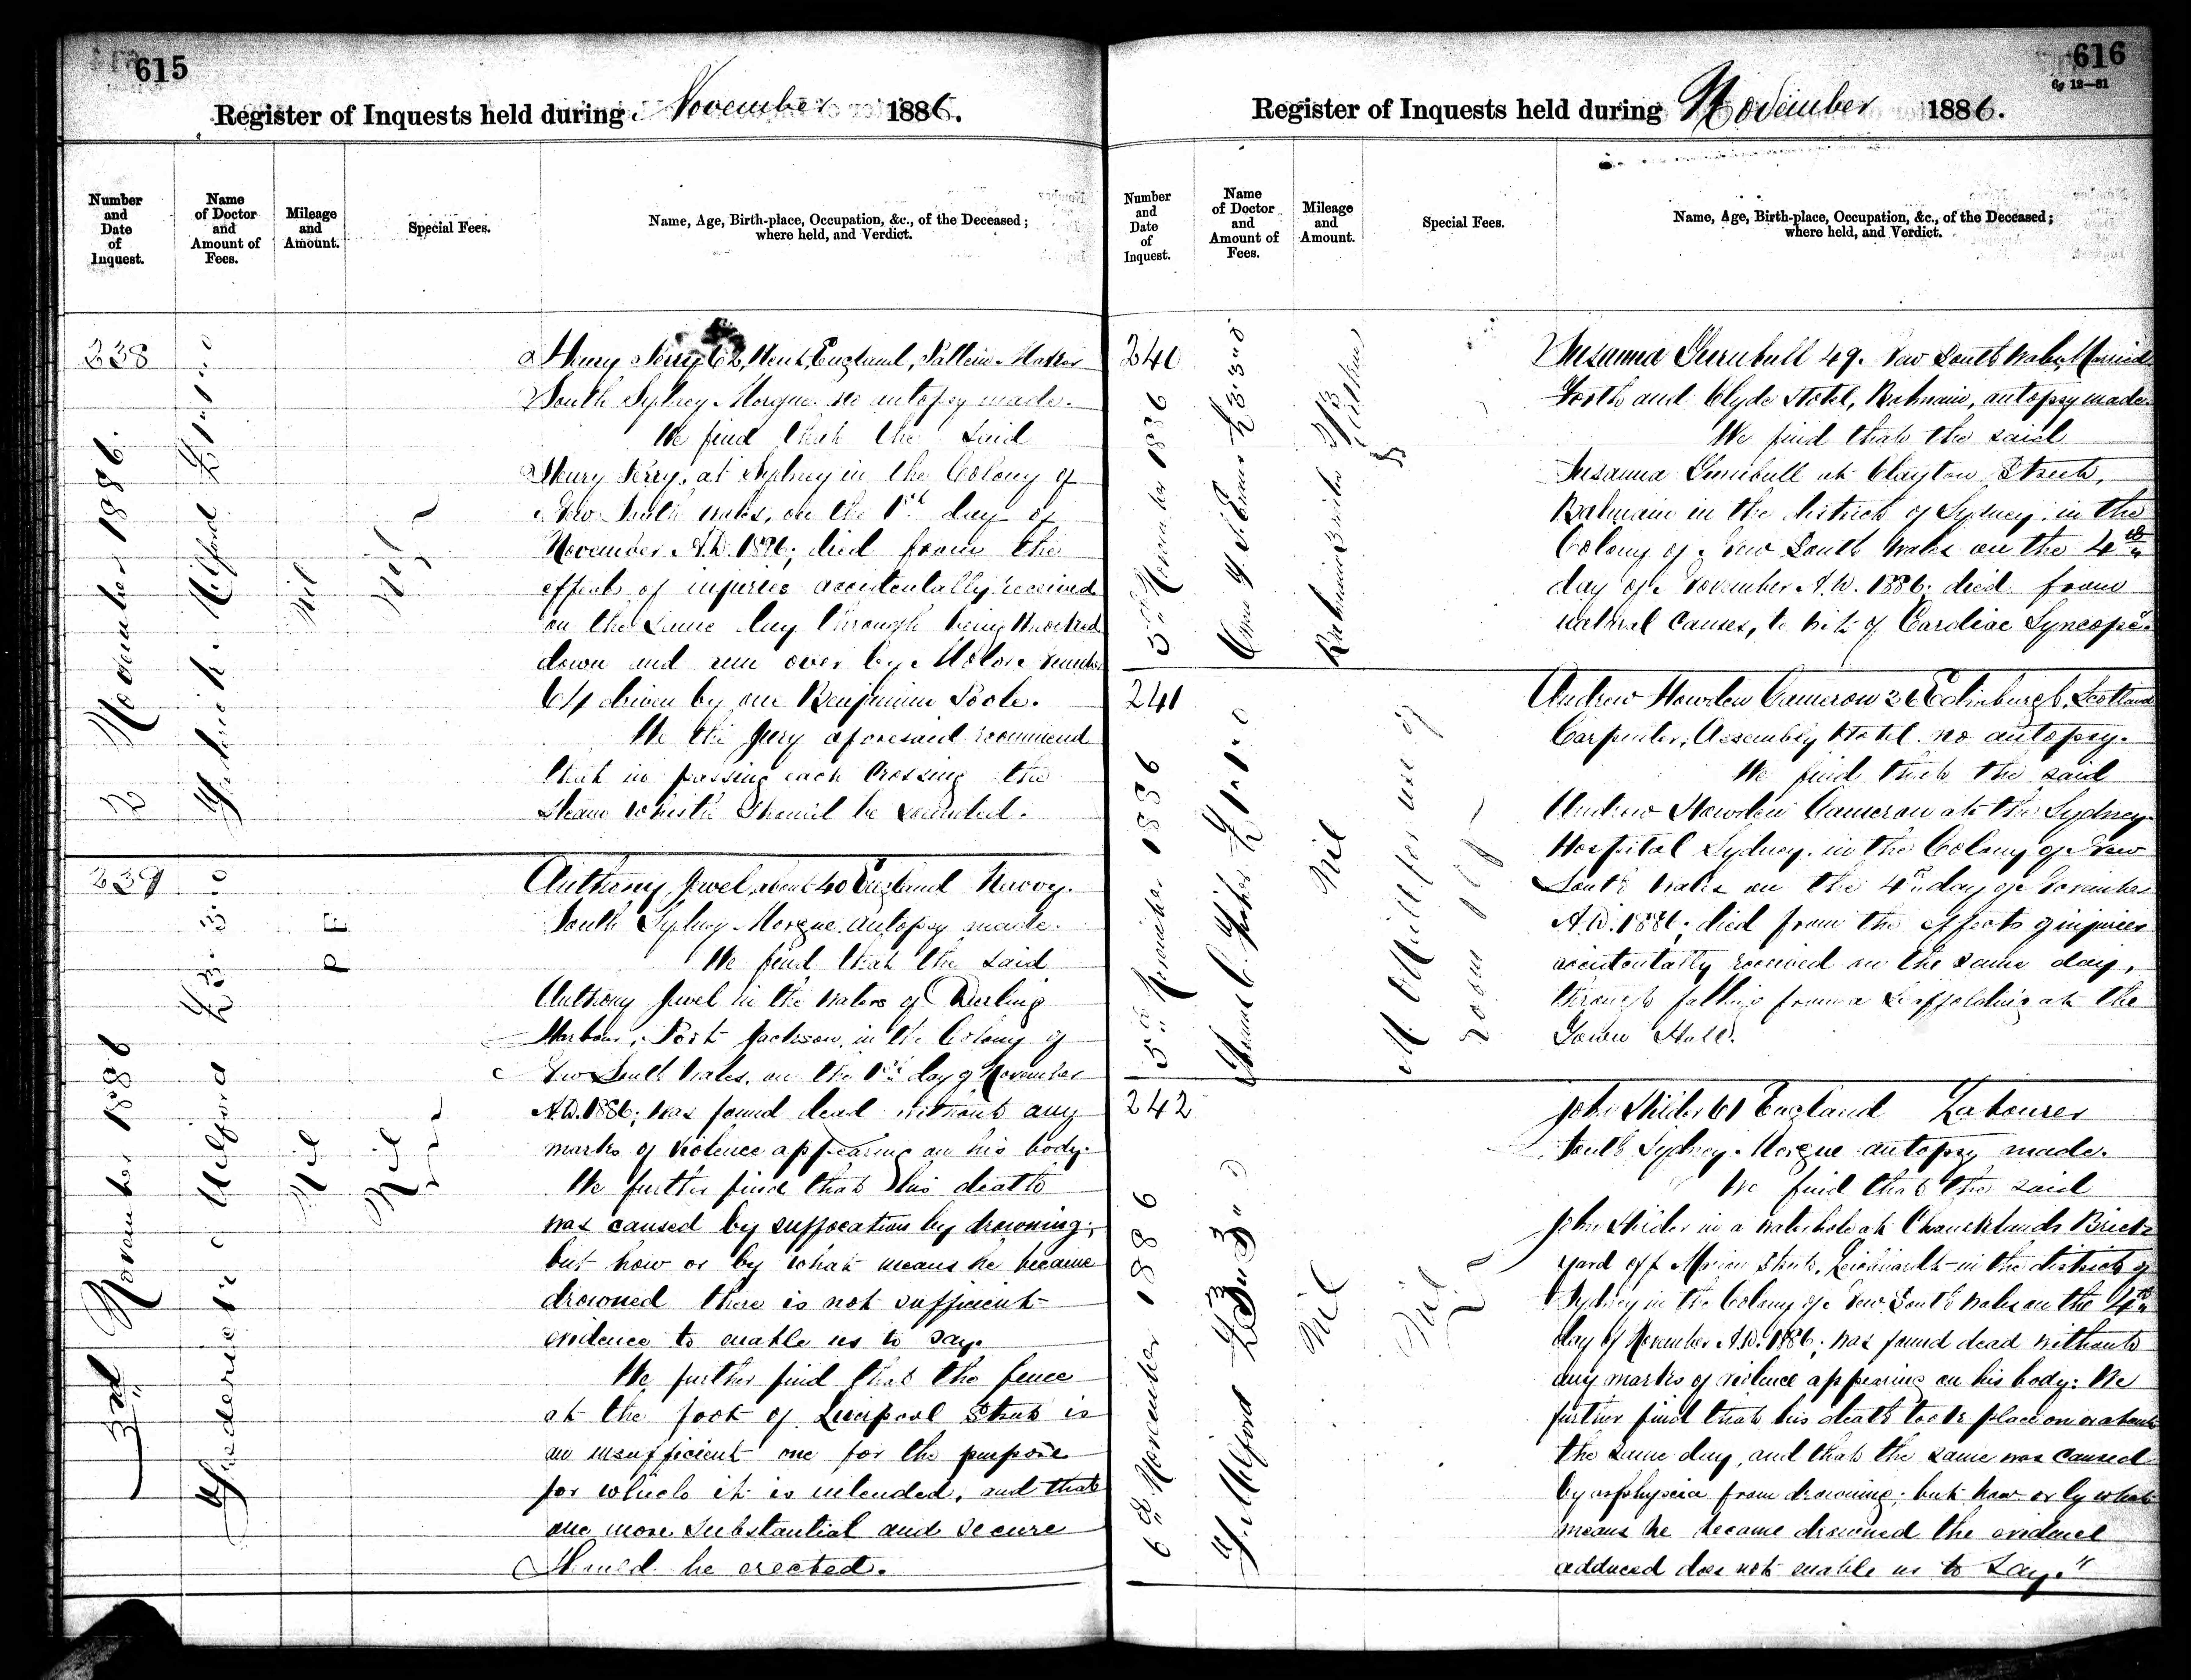 615
Register of Inquests held during November 1886.
Number and Date of Inquest.
Name of Doctor and Amount of Fees.
Mileage and Amount.
Special Fees.
Name, Age, Birth-place, Occupation, &c., of the Deceased; where held, and Verdict.
238
2 November 1886.
Frederick Milford £1.1.0
Nil
Nil
Henry Perry 62, Kent, England, Pattern Maker
South Sydney Morgue. no autopsy made.
We find that the said
Henry Perry, at Sydney in the Colony of
New South Wales, on the 1st day of
November A.D. 1886; died from the
effects of injuries accidentally received
on the same day through being knocked
down and run over by Motor Number
64 driven by one Benjamin Poole.
We the Jury aforesaid recommend
that in passing each Crossing the
steam whistle should be sounded.
239
3rd November 1886
Frederick Milford £3.3.0
P E
Nil
Nil
Anthony Jewel, about 40 England Navvy.
South Sydney Morgue. Autopsy made.
We find that the said
Anthony Jewel in the waters of Darling
Harbour, Port Jackson, in the Colony of
New South Wales, on the 1st day of November
A.D. 1886; was found dead without any
marks of violence appearing on his body.
We further find that his death
was caused by suffocation by drowning;
but how or by what means he became
drowned there is not sufficient
evidence to enable us to say.
We further find that the fence
at the foot of Liverpool Street is
an insufficient one for the purpose
for which it is intended, and that
one more substantial and secure
should be erected.
616
69 12—81
Register of Inquests held during November 1886.
Number and Date of Inquest.
Name of Doctor and Amount of Fees.
Mileage and Amount.
Special Fees.
Name, Age, Birth-place, Occupation, &c., of the Deceased; where held, and Verdict.
240
5th November 1886
Owen Evans £3.3.0
Balmain
Susanna Turnbull 49. New South Wales, Married
Forth and Clyde Hotel, Balmain, autopsy made.
We find that the said
Susanna Turnbull at Clayton Street,
Balmain in the district of Sydney, in the
Colony of New South Wales on the 4th
day of November A.D. 1886; died from
natural causes, to wit of Cardiac Syncope.
241
5th November 1886
C. £1.1.0
Nil
for use of
room
Andrew Howden Cameron 36 Edinburgh, Scotland
Carpenter, Assembly Hotel no autopsy.
We find that the said
Andrew Howden Cameron at the Sydney
Hospital Sydney, in the Colony of New
South Wales on the 4th day of November
A.D. 1886; died from the effects of injuries
accidentally received on the same day,
through falling from a scaffolding at the
Town Hall.
242
6th November 1886
F. Milford £3.3.0
Nil
Nil
John 61 England Labourer
South Sydney Morgue autopsy made.
We find that the said
John in a waterhole at Brick
yard off Marion Street, Leichhardt in the district of
Sydney in the Colony of New South Wales on the 4th
day of November A.D. 1886; was found dead without
any marks of violence appearing on his body: We
further find that his death took place on or about
the same day, and that the same was caused
by asphyxia from drowning; but how or by what
means he became drowned the evidence
adduced does not enable us to say."